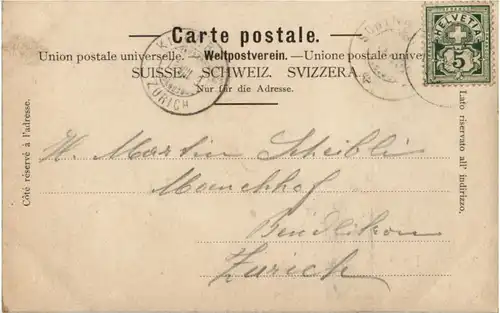 Carte postale.
Union postale universelle. — Weltpostverein. — Unione postale univer
SUISSE. SCHWEIZ. SVIZZERA.
Nur für die Adresse.
HELVETIA
5
ZÜRICH
Côté réservé à l'adresse.
Lato riservato all' indirizzo.
H. Martin Scheibli
Mönchhof
Bendlikon
Zurich